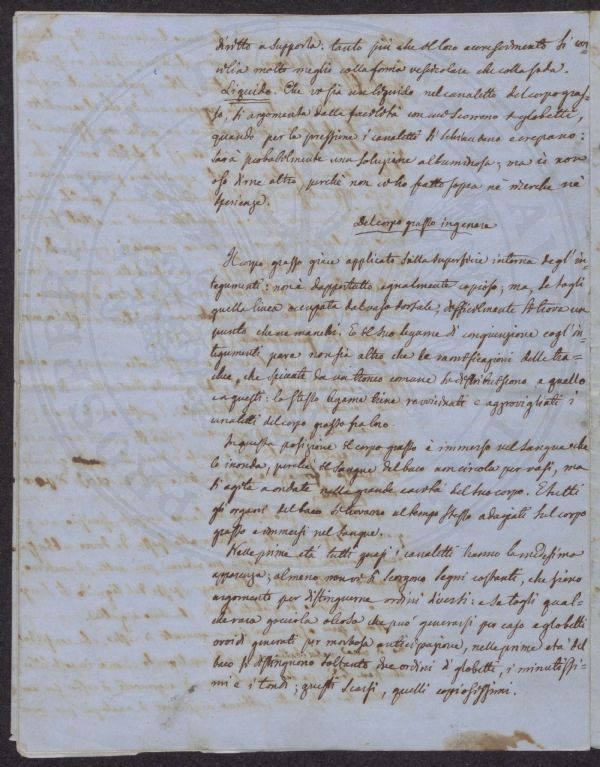 diritto a supporla: tanto più che il loro accrescimento si con=
cilia molto meglio colla forma vescicolare che colla soda.
Liquido. Che vi sia un liquido nel canaletto del corpo gras=
so, si argomenta dalla facilità con cui scorrono i globetti,
quando per la pressione i canaletti si schiudono o crepano:
sarà probabilmente una soluzione albuminosa; ma io non
oso dirne altro, perchè non vi ho fatto sopra nè ricerche nè
sperienze.
Del corpo grasso in genere
Il corpo grasso giace applicato sulla superficie interna degl'in=
tegumenti: non è dappertutto egualmente copioso; ma, se togli
quella linea occupata dal vaso dorsale, difficilmente si trova un
punto che ne manchi. E il suo legame di congiunzione cogl'in=
tegumenti pare non sia altro che le ramificazioni delle tra=
chee, che spiccate da un tronco comune si distribuiscono a quello
e a questi: lo stesso legame tiene ravvicinati e aggrovigliati i
canaletti del corpo grasso fra loro.
In questa posizione il corpo grasso è immerso nel sangue che
lo inonda, perchè il sangue del baco non circola per vasi, ma
si agita a ondate nella grande cavità del suo corpo. E tutti
gli organi del baco si trovano al tempo stesso adagiati sul corpo
grasso e immersi nel sangue.
Nelle prime età tutti quasi i canaletti hanno la medesima
apparenza; almeno non vi si scorgono segni costanti, che sieno
argomento per distinguerne ordini diversi: e se togli qual=
che rara gocciola oleosa che può generarsi per caso e globetti
ovoidi generati per morbosa anticipazione, nelle prime età del
baco si distinguono soltanto due ordini di globetti, i minutissi=
mi e i tondi; questi scarsi, quelli copiosissimi.